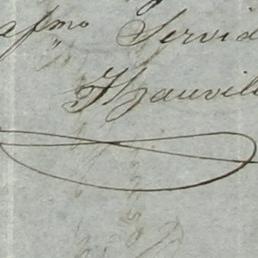 afmo Servid
Thauvill